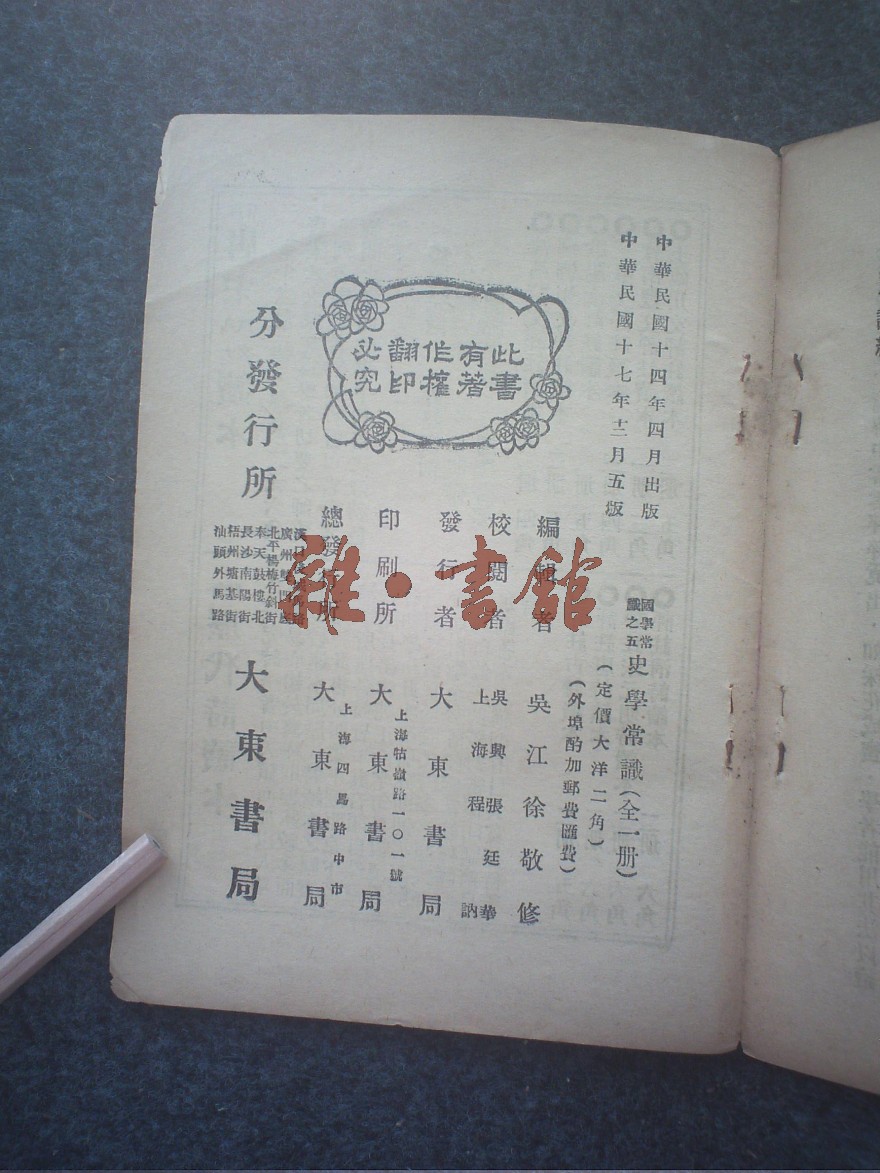 中華民國十四年四月出版
中華民國十七年十二月五版
國學常識之五
史學常識(全一册)
(定價大洋二角)
(外埠酌加郵費匯費)
此書
有著
作權
翻印
必究
編輯者 吳江徐敬修
校閱者 吳興張廷華
上海程訥
發行者 大東書局
印刷所 上海牯嶺路一〇一號
大東書局
總發行所 上海四馬路中市
大東書局
分發行所
北平楊梅竹斜街
奉天鼓樓北
長沙南陽街
梧州塘基街
汕頭外馬路
大東書局
雜·書館